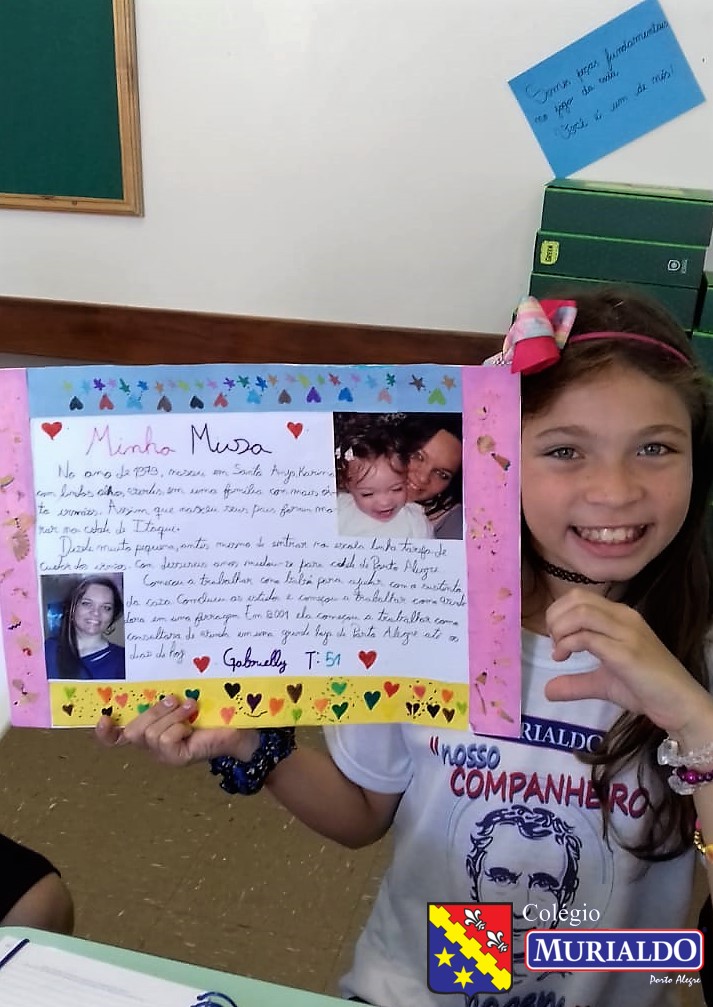 Somos peças fundamentais
no jogo da vida.
Você é um de nós!
GREEN
Minha Musa
No ano de 1973, nasceu em Santo Ânjo, Karine
com lindos olhos verdes, em uma família com mais oi-
to irmãos. Assim que nasceu seus pais foram mo-
rar na cidade de Itaqui.
Desde muito pequena, antes mesmo de entrar na escola tinha tarefa de
cuidar dos irmãos. Com dezesseis anos mudou-se para cidade de Porto Alegre
Começou a trabalhar como babá para ajudar com o sustento
da casa. Concluiu os estudos e começou a trabalhar como vende
dora em uma ferragem. Em 2001 ela começou a trabalhar como
consultora de vendas em uma grande loja de Porto Alegre até os
dias de hoj
Gabrielly T: 51
MURIALDO
"NOSSO
COMPANHEIRO
Colégio
MURIALDO
Porto Alegre